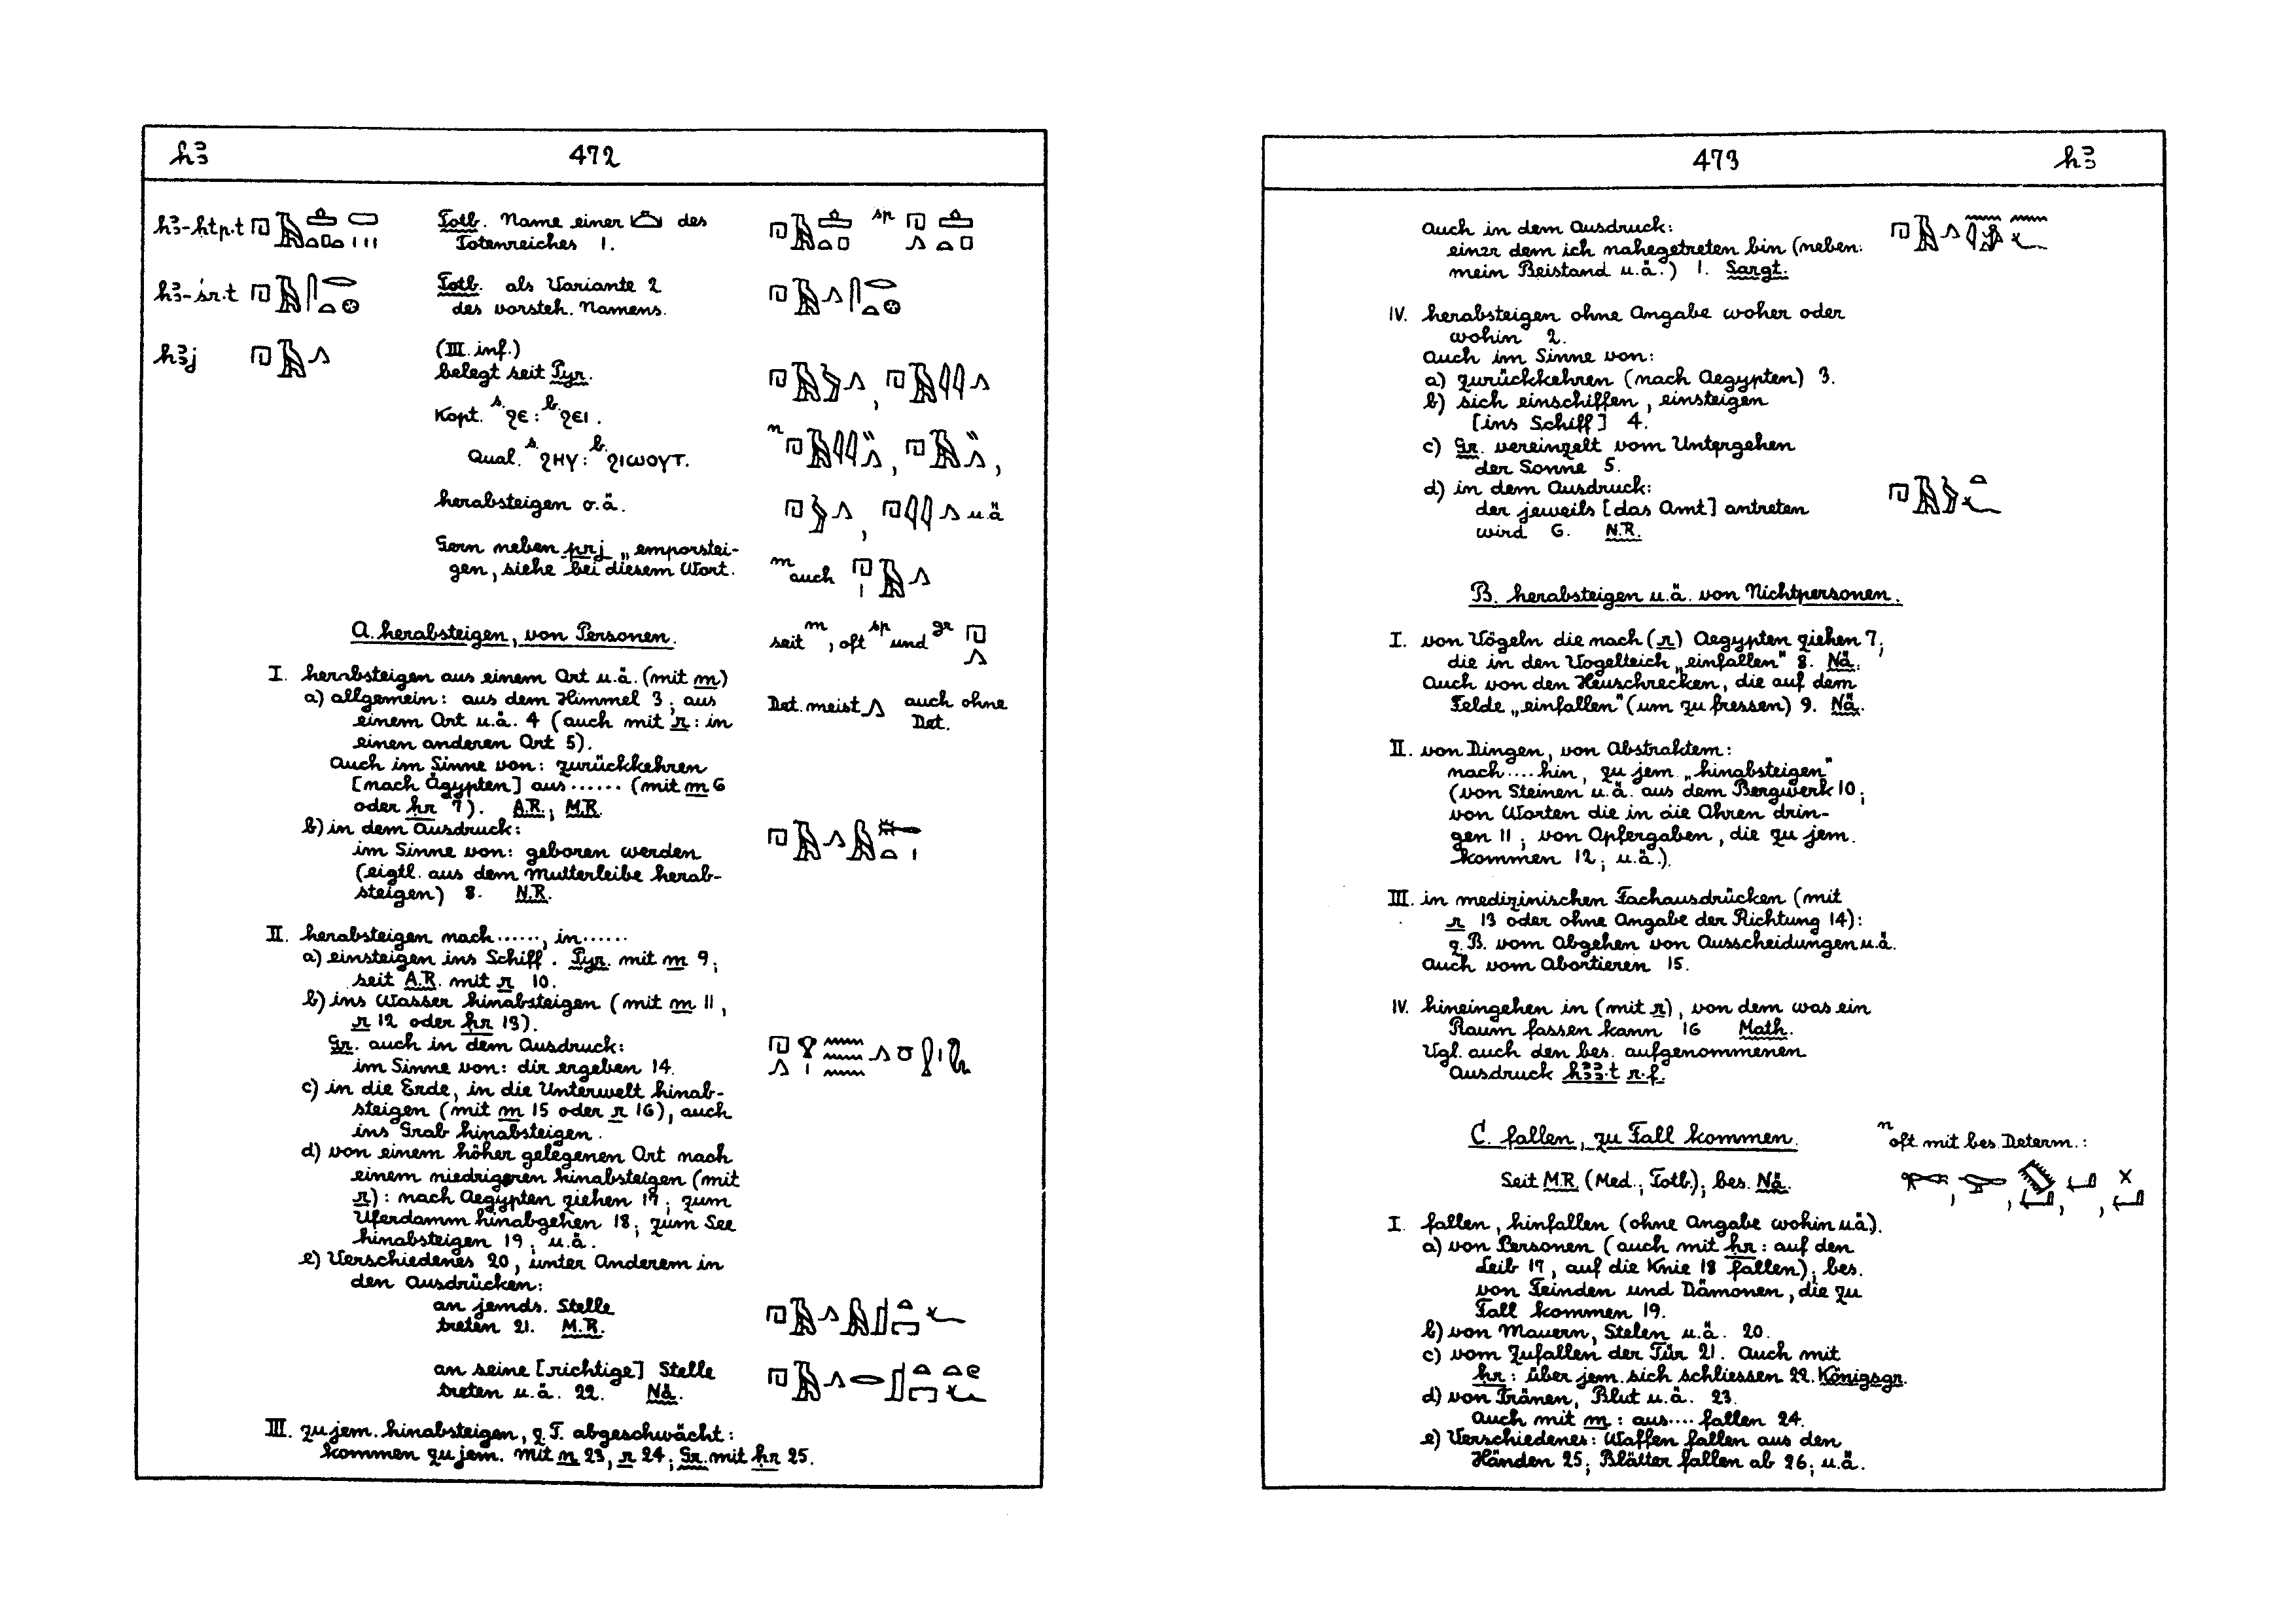 hꜣ 472
hꜣ-ḥtp.t Totb. Name einer des
Totenreiches 1.
sp
hꜣ-śr.t Totb. als Variante 2
des vorsteh. Namens.
hꜣj (III. inf.)
belegt seit Pyr.
Kopt. s. ϩⲉ : b. ϩⲉⲓ.
Qual. s. ϩⲏⲩ : b. ϩⲓⲱⲟⲩⲧ.
n
herabsteigen o.ä.
u.ä
Gern neben prj „emporstei-
gen, siehe bei diesem Wort.
m auch
A. herabsteigen, von Personen.
seit m, oft sp und gr
I. herabsteigen aus einem Ort u.ä. (mit m)
a) allgemein: aus dem Himmel 3; aus
einem Ort u.ä. 4 (auch mit r: in
einen anderen Ort 5).
Det. meist auch ohne
Det.
Auch im Sinne von: zurückkehren
[nach Ägypten] aus ...... (mit m 6
oder ḥr 7). A.R.; M.R.
b) in dem Ausdruck:
im Sinne von: geboren werden
(eigtl. aus dem Mutterleibe herab-
steigen) 8. N.R.
II. herabsteigen nach ......, in ......
a) einsteigen ins Schiff. Pyr. mit m 9;
seit A.R. mit r 10.
b) ins Wasser hinabsteigen (mit m 11,
r 12 oder ḥr 13).
Gr. auch in dem Ausdruck:
im Sinne von: dir ergeben 14.
c) in die Erde, in die Unterwelt hinab-
steigen (mit m 15 oder r 16), auch
ins Grab hinabsteigen.
d) von einem höher gelegenen Ort nach
einem niedrigeren hinabsteigen (mit
r): nach Aegypten ziehen 17; zum
Uferdamm hinabgehen 18; zum See
hinabsteigen 19; u.ä.
e) Verschiedenes 20, unter Anderem in
den Ausdrücken:
an jemds. Stelle
treten 21. M.R.
an seine [richtige] Stelle
treten u.ä. 22. Nä.
III. zu jem. hinabsteigen, z.T. abgeschwächt:
kommen zu jem. mit n 23, r 24; Gr. mit ḥr 25.
473 hꜣ
Auch in dem Ausdruck:
einer dem ich nahegetreten bin (neben:
mein Beistand u.ä.) 1. Sargt.
IV. herabsteigen ohne Angabe woher oder
wohin 2.
Auch im Sinne von:
a) zurückkehren (nach Aegypten) 3.
b) sich einschiffen, einsteigen
[ins Schiff] 4.
c) Gr. vereinzelt vom Untergehen
der Sonne 5.
d) in dem Ausdruck:
der jeweils [das Amt] antreten
wird 6. N.R.
B. herabsteigen u.ä. von Nichtpersonen.
I. von Vögeln die nach (r) Aegypten ziehen 7;
die in den Vogelteich „einfallen" 8. Nä.
Auch von den Heuschrecken, die auf dem
Felde „einfallen" (um zu fressen) 9. Nä.
II. von Dingen, von Abstraktem:
nach .... hin, zu jem. „hinabsteigen"
(von Steinen u.ä. aus dem Bergwerk 10;
von Worten die in die Ohren drin-
gen 11; von Opfergaben, die zu jem.
kommen 12; u.ä.).
III. in medizinischen Fachausdrücken (mit
r 13 oder ohne Angabe der Richtung 14):
z.B. vom Abgehen von Ausscheidungen u.ä.
Auch vom Abortieren 15.
IV. hineingehen in (mit r), von dem was ein
Raum fassen kann 16 Math.
Vgl. auch den bes. aufgenommenen
Ausdruck hꜣꜣ.t r.f.
C. fallen, zu Fall kommen.
n oft mit bes. Determ.:
Seit M.R. (Med.; Totb.); bes. Nä.
I. fallen, hinfallen (ohne Angabe wohin u.ä).
a) von Personen (auch mit ḥr: auf den
Leib 17, auf die Knie 18 fallen); bes.
von Feinden und Dämonen, die zu
Fall kommen 19.
b) von Mauern, Stelen u.ä. 20.
c) vom Zufallen der Tür 21. Auch mit
ḥr: über jem. sich schliessen 22. Königsgr.
d) von Tränen, Blut u.ä. 23.
Auch mit m: aus .... fallen 24.
e) Verschiedenes: Waffen fallen aus den
Händen 25; Blätter fallen ab 26; u.ä.